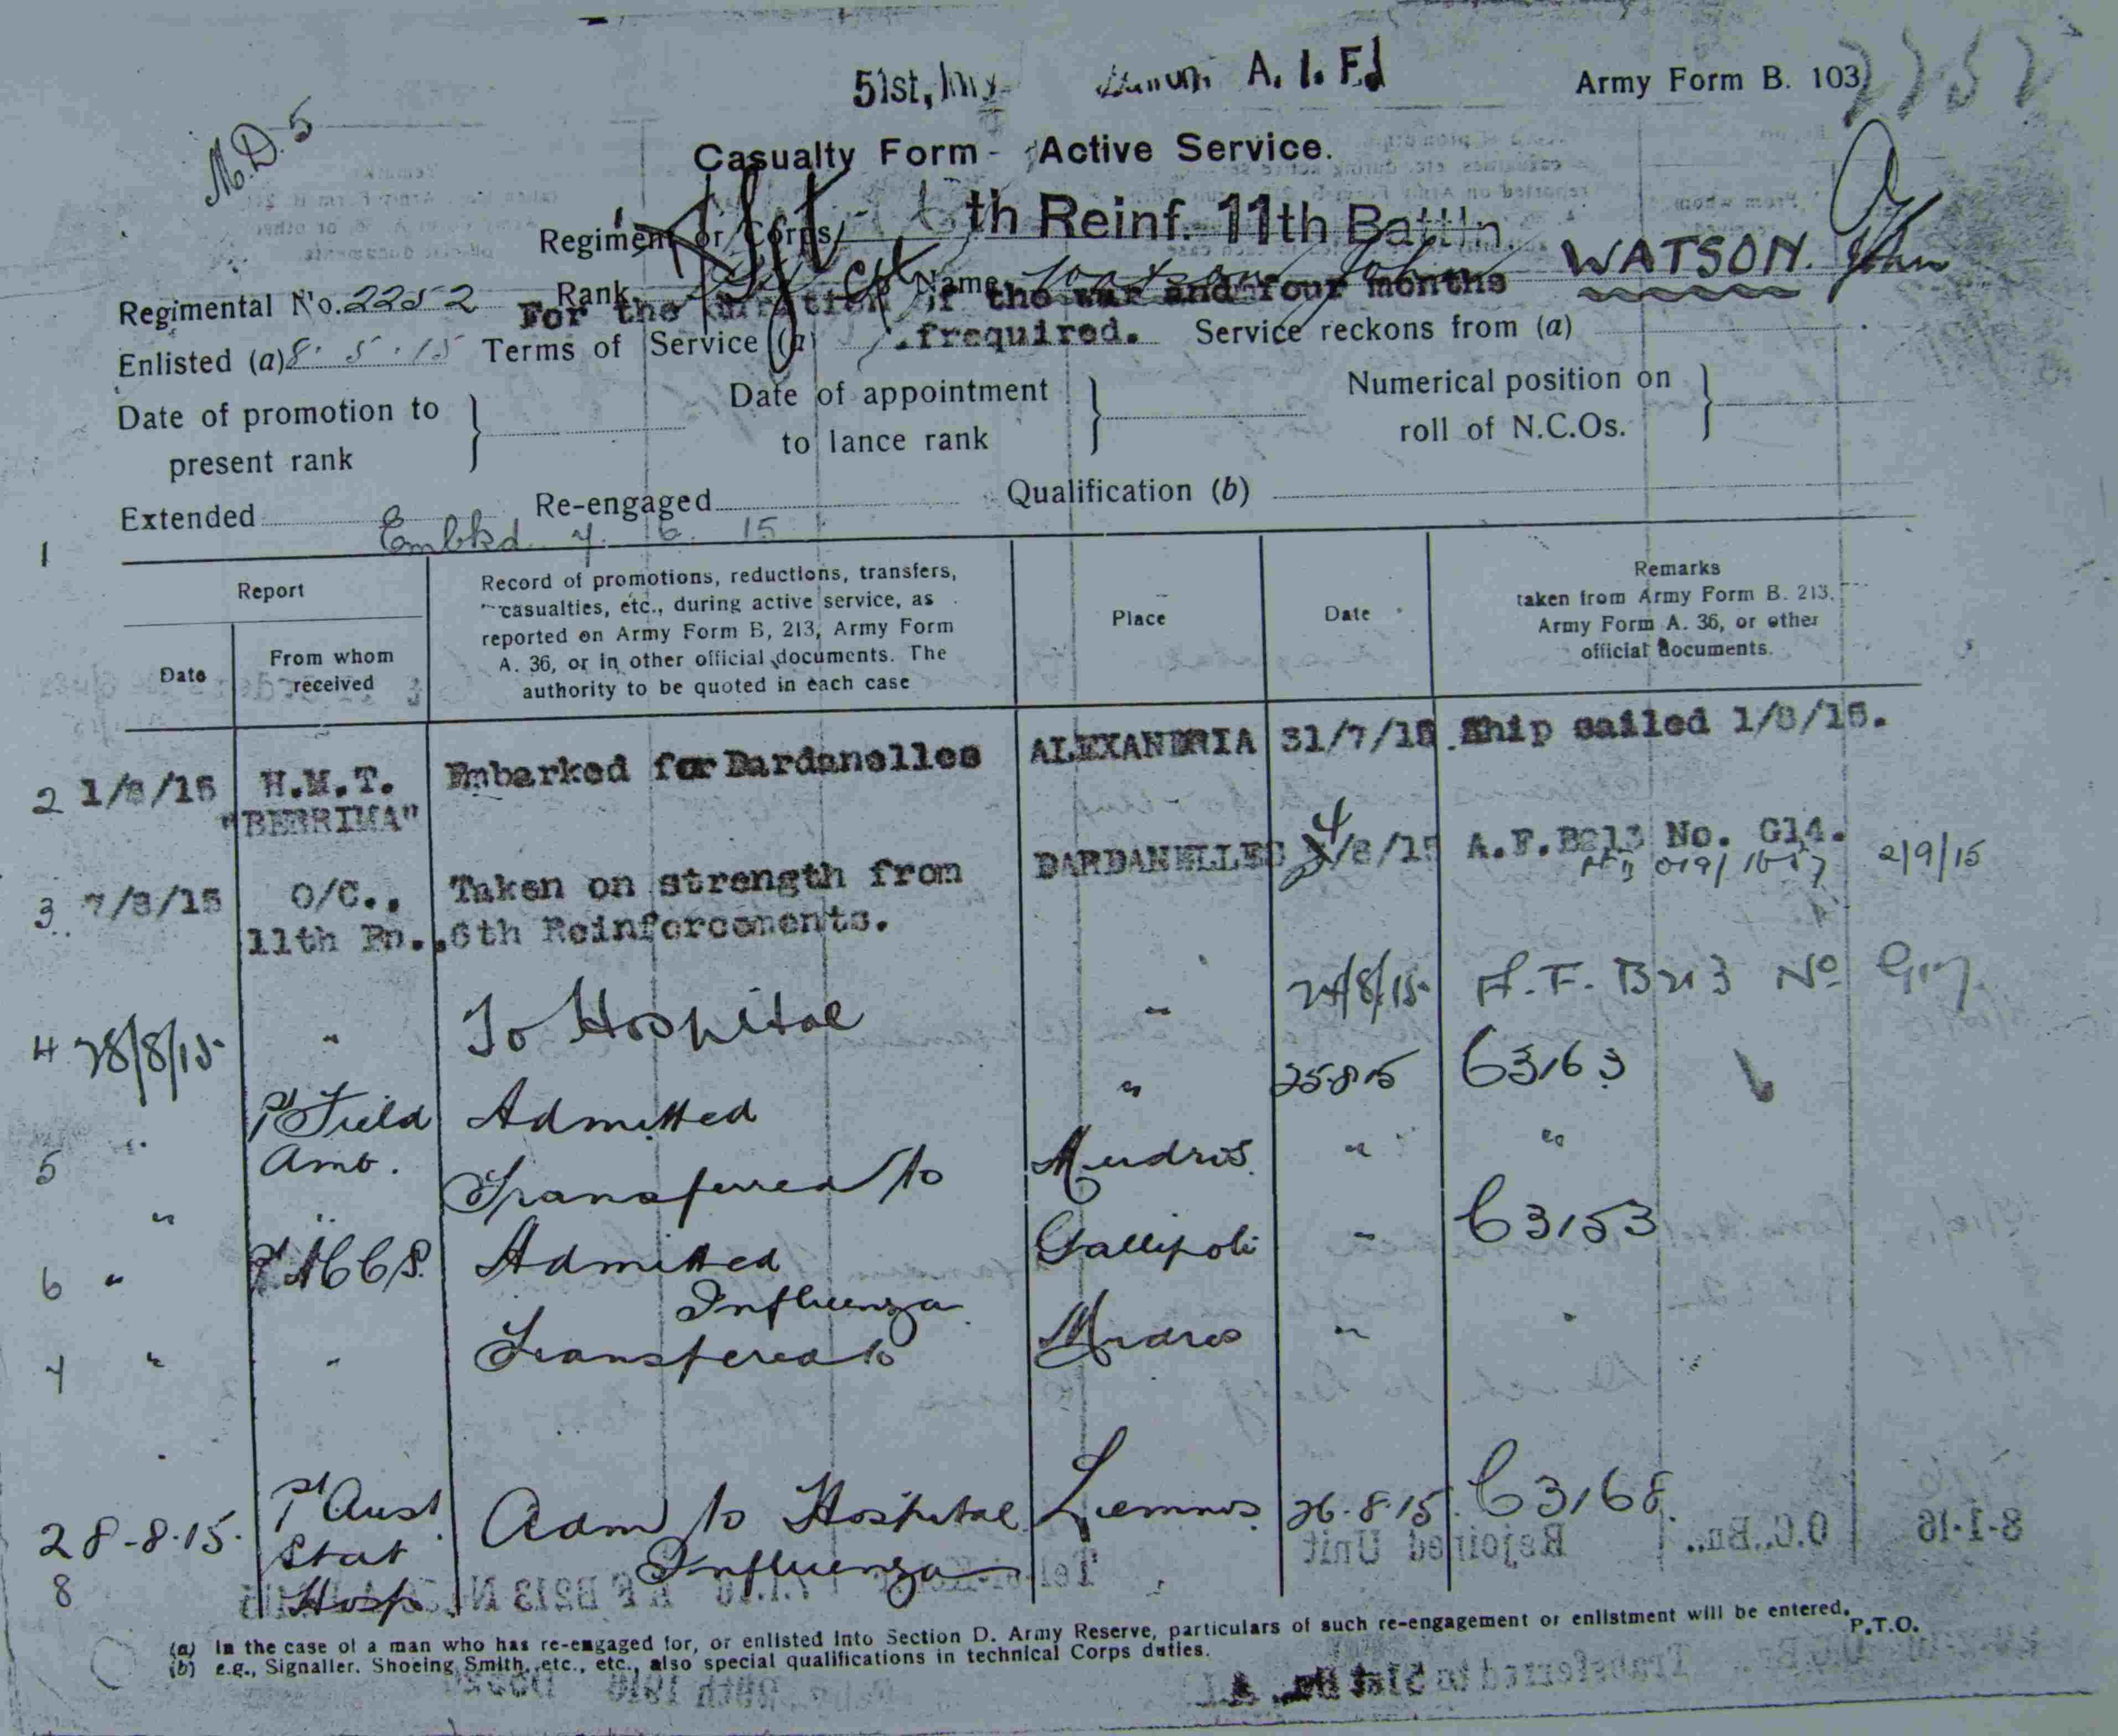 51st, A. I. F.
Army Form B. 103
M.D. 5
Casualty Form - Active Service.
Regiment or Corps 6th Reinf. 11th Battln.
WATSON. John
Regimental No. 2252 Rank Cpl Name Watson John
For the duration of the war and four months
if required.
Enlisted (a) 8.5.15 Terms of Service (a) Service reckons from (a)
Date of promotion to present rank } Date of appointment to lance rank } Numerical position on roll of N.C.Os. }
Extended Re-engaged Qualification (b)
Embkd 7. 6. 15
1
Report
Date
From whom received
Record of promotions, reductions, transfers,
casualties, etc., during active service, as
reported on Army Form B, 213, Army Form
A. 36, or in other official documents. The
authority to be quoted in each case
Place
Date
Remarks
taken from Army Form B. 213,
Army Form A. 36, or other
official documents.
2 1/8/15 H.M.T. "BERRIMA" Embarked for Dardanelles ALEXANDRIA 31/7/15. Ship sailed 1/8/15.
3 7/8/15 O/C., 11th Bn., Taken on strength from 6th Reinforcements. DARDANELLES 4/8/15 A.F.B213 No. G14. 2/9/15
4 28/8/15 " To Hospital " 24/8/15 A.F. B213 No
5 " 1st Field Amb. Admitted " 25-8-15 C3163
" " Transferred to Mudros " "
6 " 1st ACCS. Admitted Influenza Gallipoli " C3153
7 " " Transfered to Mudros " "
28-8-15. 1st Aust Stat Hosp. Adm to Hospital Influenza Lemnos 26-8-15 C3168.
8
(a) In the case of a man who has re-engaged for, or enlisted into Section D. Army Reserve, particulars of such re-engagement or enlistment will be entered.
(b) e.g., Signaller, Shoeing Smith, etc., etc., also special qualifications in technical Corps duties.
P.T.O.